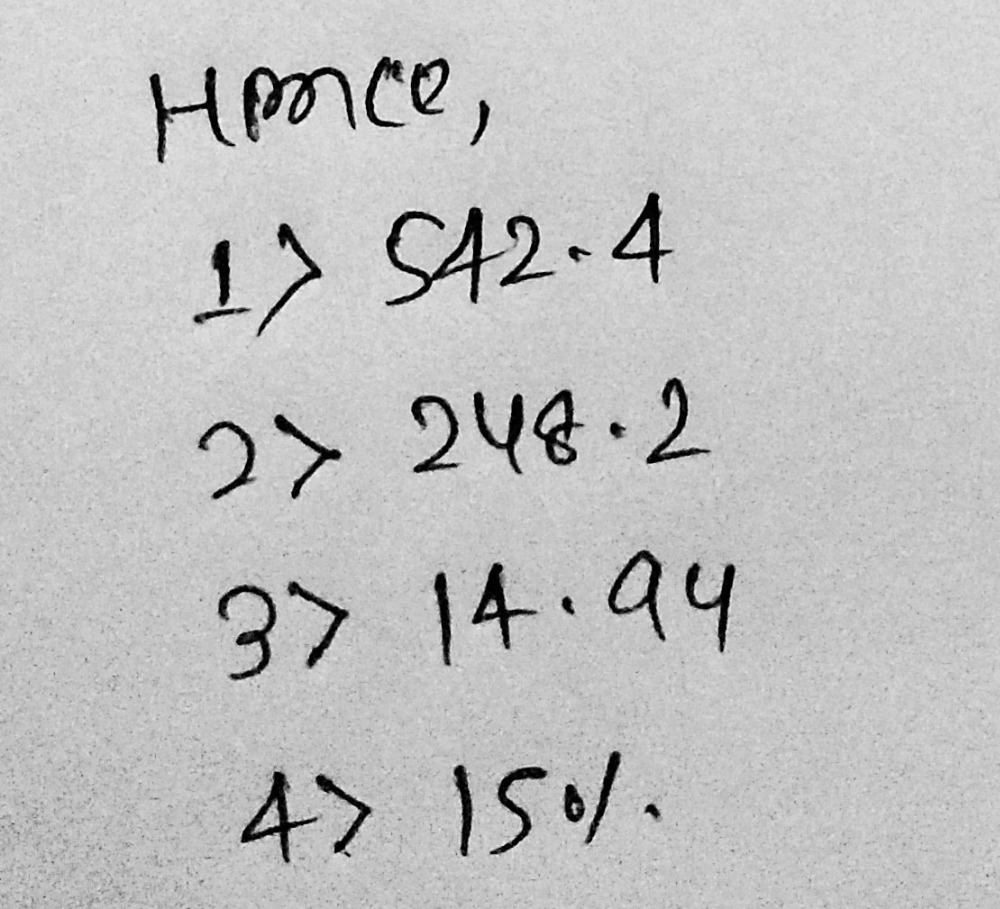 Hence,
1> 542.4
2> 248.2
3> 14.94
4> 15%